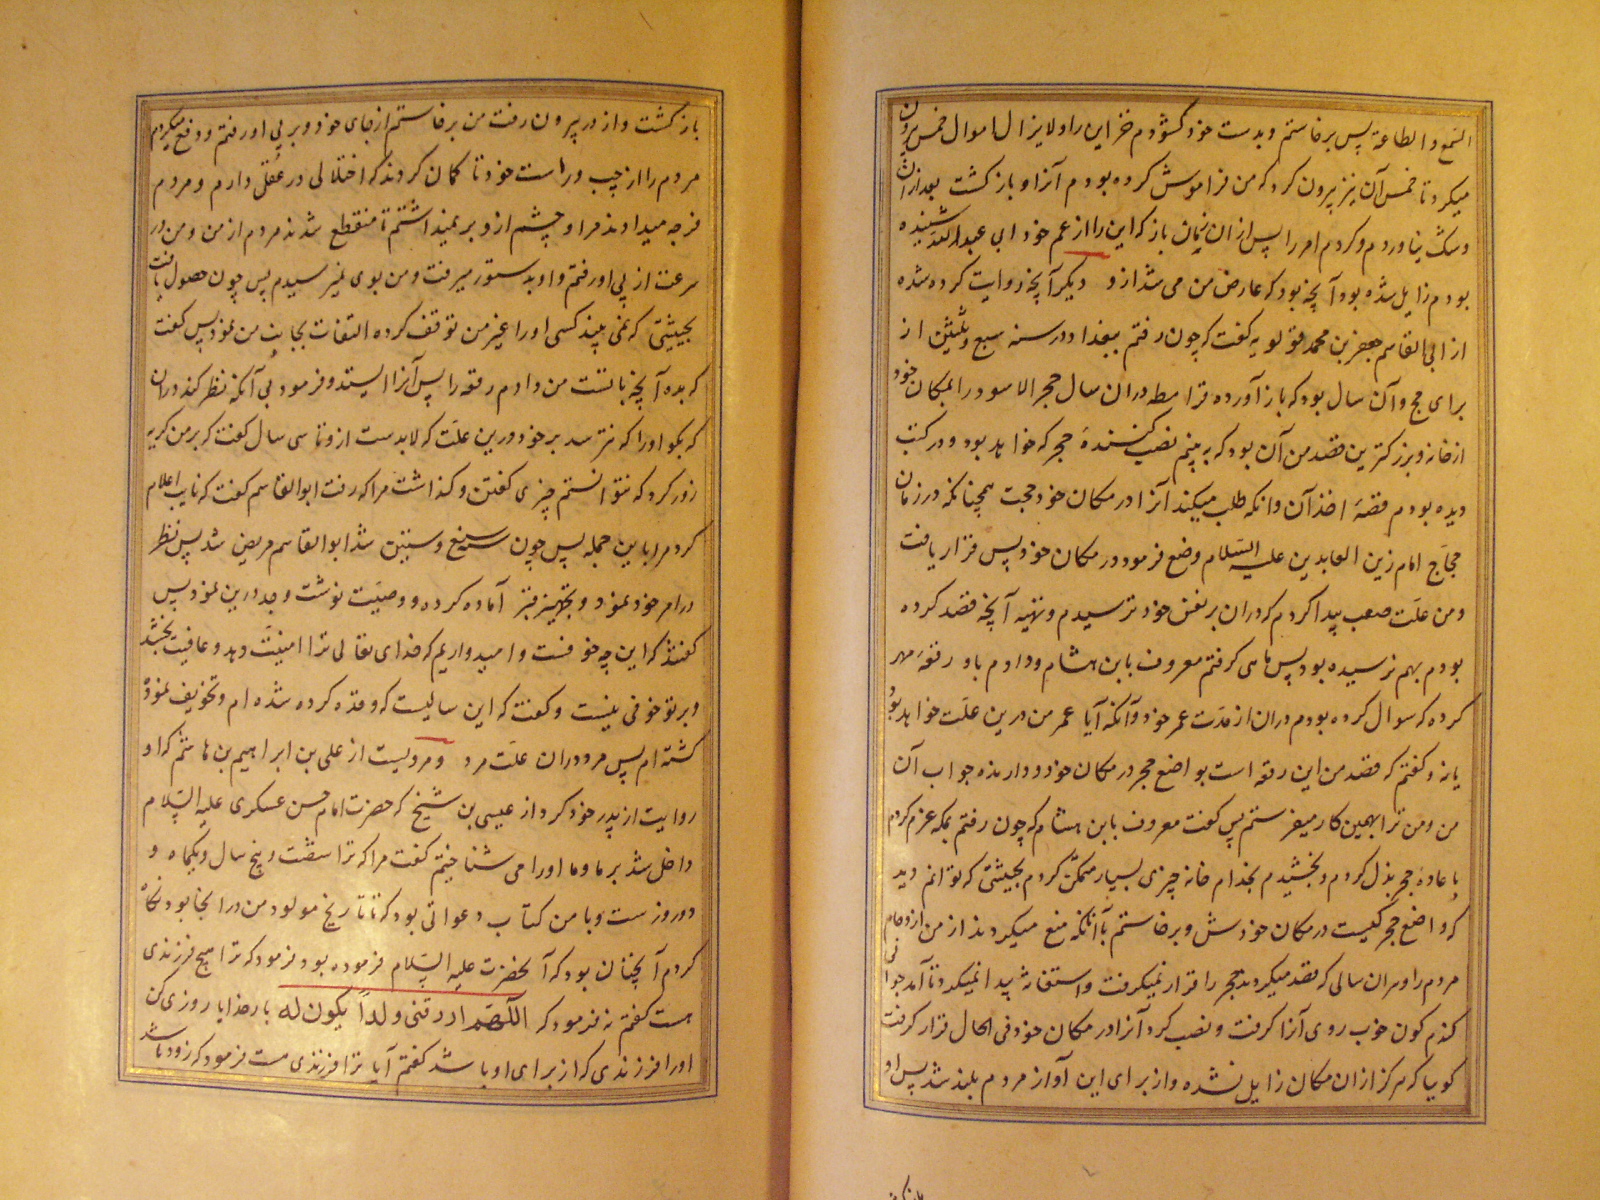 السمع و الطاعة پس برخاستم و بدست خود کشودم خزاین را و لا یزال اموال خمس بیرون
میکرد تا خمس آن نیز بیرون کرد که من فراموش کرده بودم آنرا و بازگشت بعد از ان
و شک نیاوردم و کردم امر را پس از ان زمان باز که این را از عم خود ابی عبد الله شنیده
بودم زایل شده بود آنچه بود که عارض من می شد از و دیگر آنچه روایت کرده شده
از ابی القاسم جعفر بن محمد قولویه گفت که چون رفتم ببغداد در سنه سبع و ثلثین از
برای حج و آن سال بود که باز آورده قرامطه در ان سال حجر الاسود را بمکان خود
از خانه و بزرکترین قصد من آن بود که به بینم نصب کنندهٔ حجر که خواهد بود و در کتب
دیده بودم قصهٔ اخذ آن و انکه طلب میکند آنرا در مکان خود حجت همچنانکه در زمان
حجاج امام زین العابدین علیه السلام وضع فرمود در مکان خود پس قرار یافت
و من علت صعب پیدا کردم که در ان بر نفس خود ترسیدم و تهیه آنچه قصد کرده
بودم بهم نرسیده بود پس ماهی کرفتم معروف بابن هشام و دادم باو رقعهٔ مهر
کرده که سوال کرده بودم در ان از مدت عمر خود و آنکه آیا عمر من درین علت خواهد بود
یا نه و گفتم که قصد من این رقعه است بواضع حجر در مکان خود و دار مذه جواب آن
من و من ترا بهمین کار میفرستم پس گفت معروف بابن هشام که چون رفتم بمکه عزم کردم
باعادهٔ حجر بذل کردم و بخشیدم بخدام خانه چیزی بسیار متمکن کردم بحیثیتی که توانم دید
که واضع حجر کیست در مکان خودش و برخاستم با آنکه منع میکردند از من ازدحام
مردم را و هر ان سالی که قصد میکردند حجر را قرار نمیکرفت و استقامت پیدا نمیکرد تا آمد جوانی
کندم کون خوب روی آنرا کرفت و نصب کرد آنرا در مکان خود فی الحال قرار کرفت
کویا که هرکز از ان مکان زایل نشده و از برای این آواز مردم بلند شد پس او
بازگشت و از در بیرون رفت من برخاستم از جای خود و بر پی او رفتم و دفع میکردم
مردم را از چپ و راست خود تا گمان کردند که اختلالی در عقل دارم و مردم
فرجه میدادند مرا و چشم از و بر نمیداشتم تا منقطع شدند مردم از من و من در
سرعت از پی او رفتم و او بدستور میرفت و من بوی نمیرسیدم پس چون حصول یافت
بحیثیتی که نمی بیند کسی او را غیر من توقف کرده التفات بجانب من نمود پس گفت
که بده آنچه با تست من دادم رقعه را پس آنرا استد و فرمود بی آنکه نظر کند در ان
که بکو او را که نترسد بر خود درین علت که لابدست از و تا سی سال گفت که بر من گریه
زور کرد که نتوانستم چیزی گفتن و گذاشت مرا که رفت ابو القاسم گفت که نایب اعلام
کرد مرا باین جمله پس چون سبع و ستین شد ابو القاسم مریض شد پس نظر
در امر خود نمود و تجهیز قبر آماده کرده و وصیت نوشت و جد درین نمود پس
گفتند که این چه خوفست و امیدواریم که خدای تعالی ترا امنیت دهد و عافیت بخشد
و بر تو خوفی نیست و گفت که این سالیست که وعده کرده شده ام و تخویف نموده
گشته ام پس مرد در ان علت مرد و مرویست از علی بن ابراهیم بن هاشم که او
روایت از پدر خود کرد از عیسی بن شیخ که حضرت امام حسن عسکری علیه السلام
داخل شد بر ما و ما او را می شناختیم گفت مرا که ترا شصت و پنج سال و یکماه و
دو روزست و با من کتاب دعواتی بود که تا تاریخ مولود من در انجا بود نگاه
کردم آنچنان بود که آنحضرت علیه السلام فرموده بود فرمود که ترا هیچ فرزندی
هست گفتم نه فرمود که اللهم ارزقنی ولداً یکون له بار خدایا روزی کن
او را فرزندی که از برای او باشد گفتم آیا ترا فرزندی هست فرمود که زود باشد